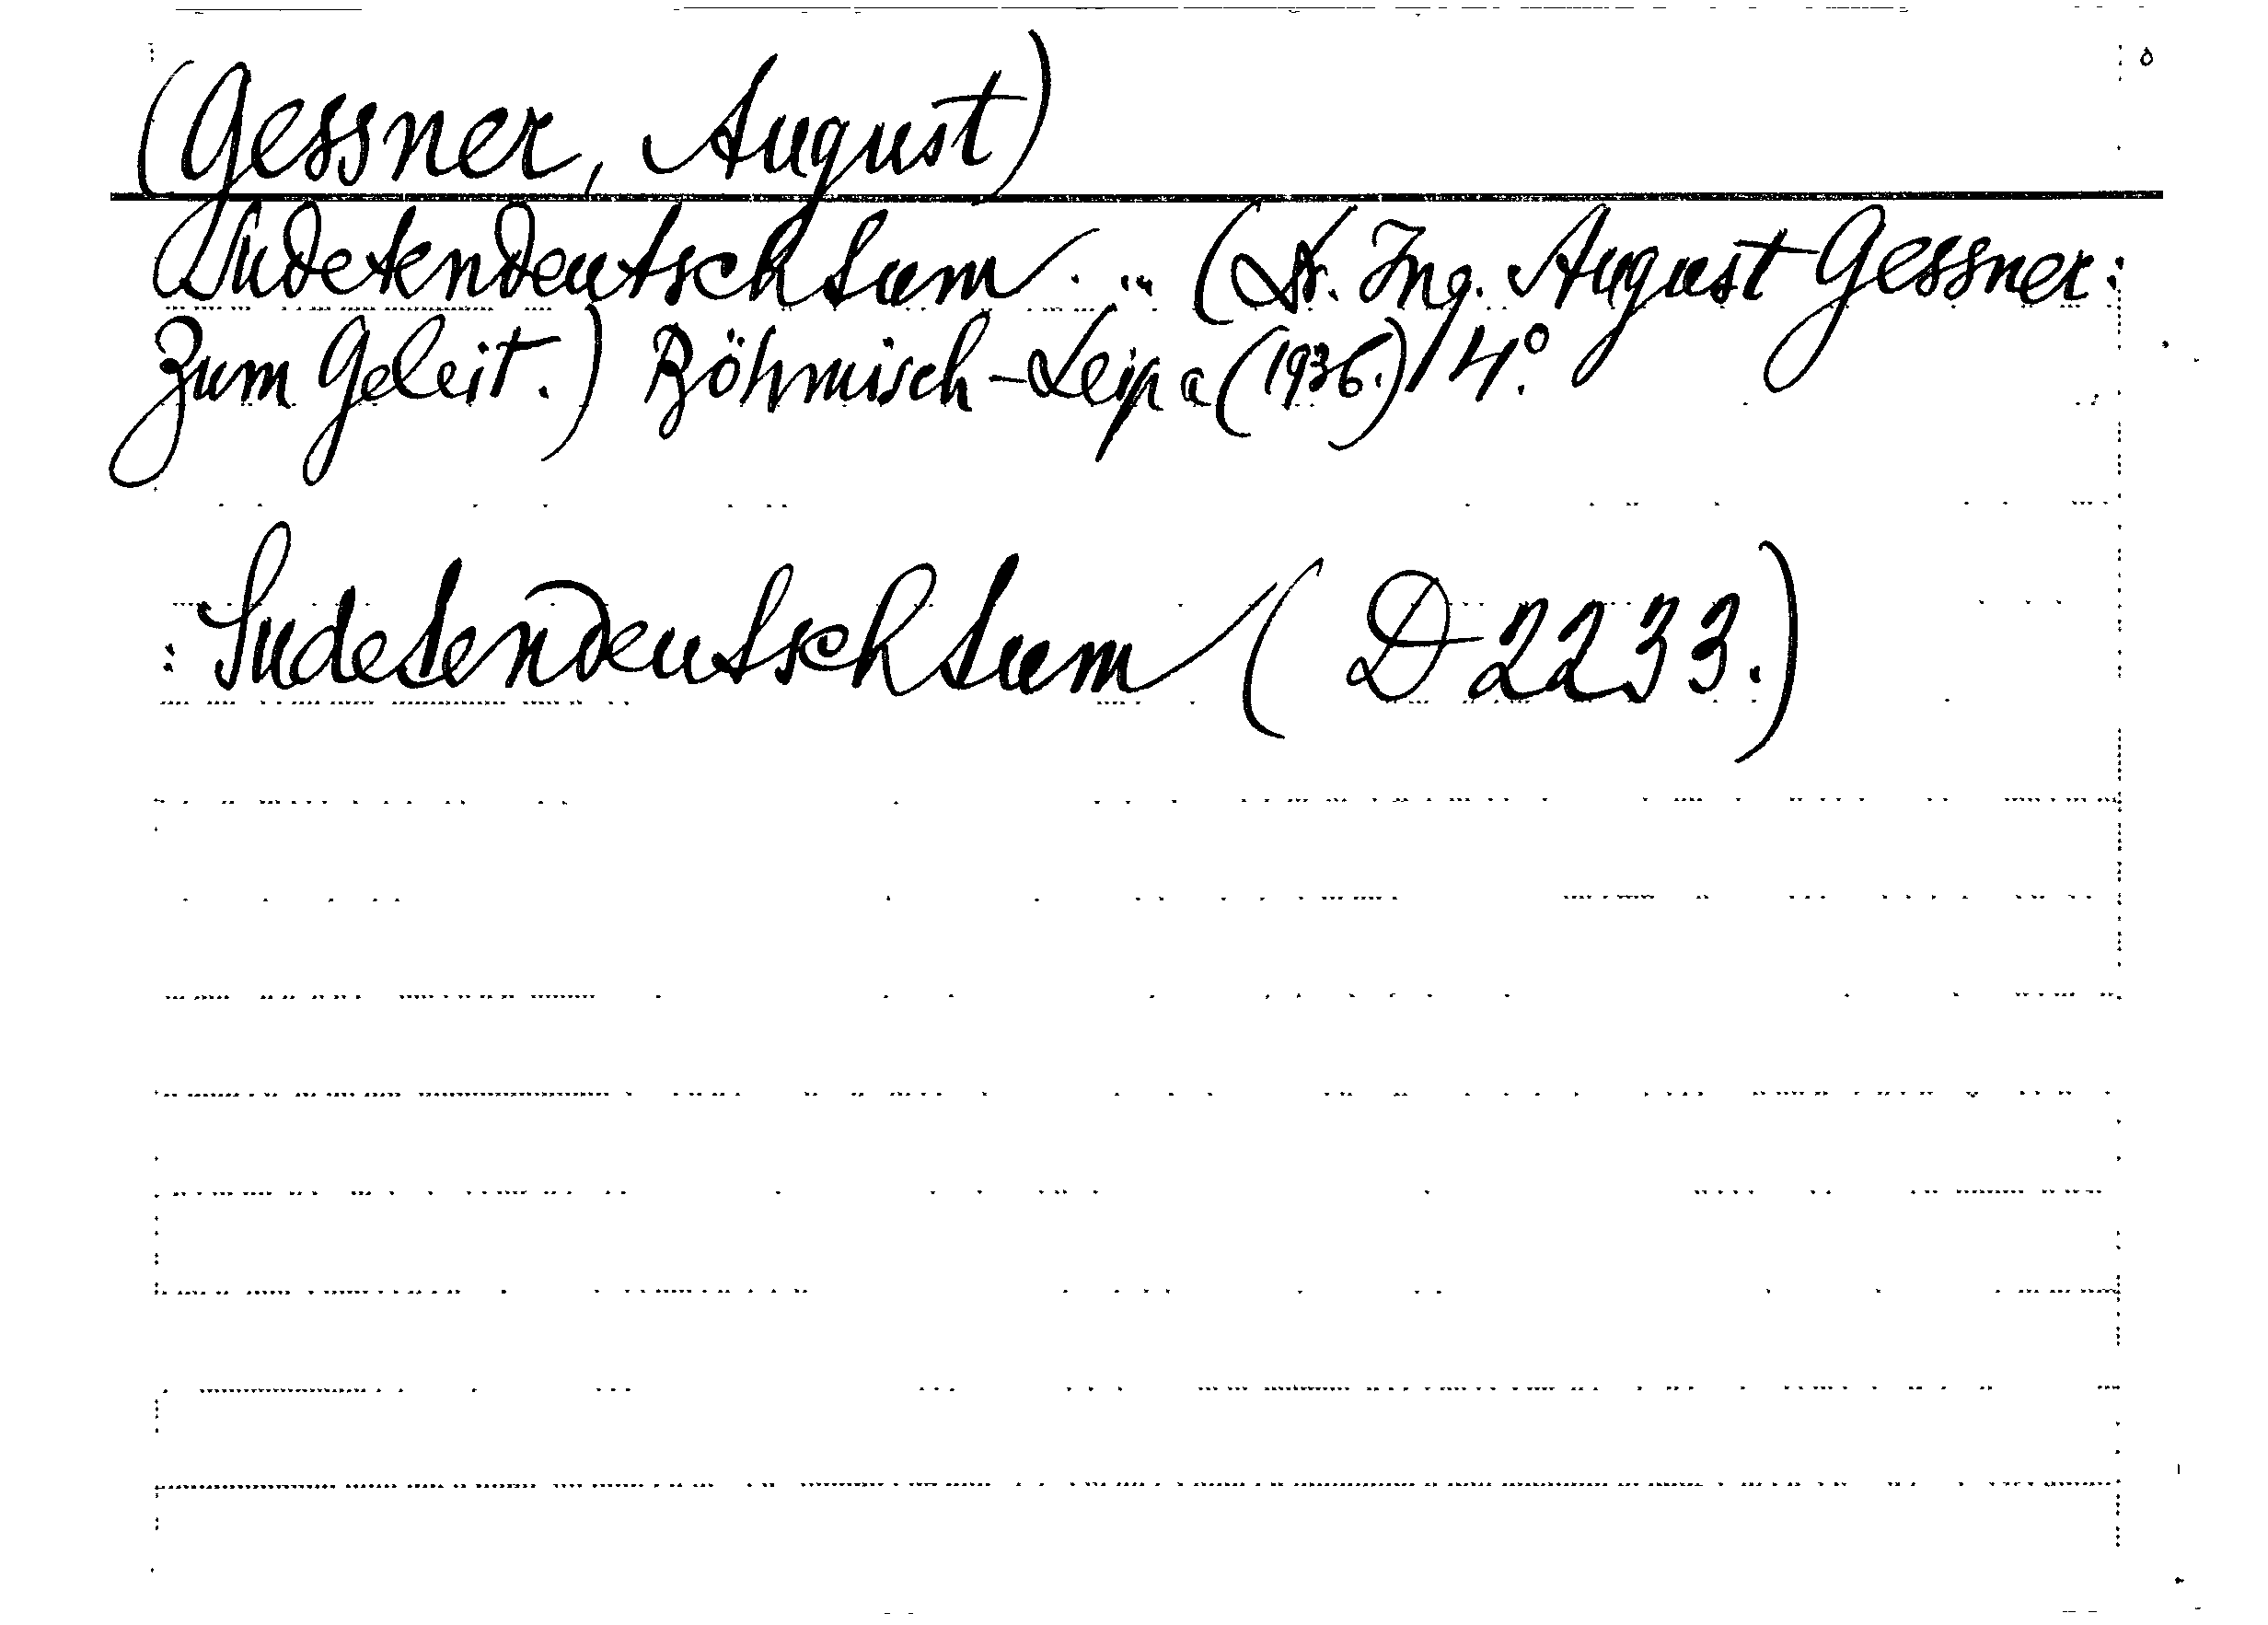 (Gessner, August)
Sudetendeutschtum. ... (Dr. Ing. August Gessner:
Zum Geleit.) Böhmisch-Leipa (1936.) 4°.
: Sudetendeutschtum (D 2233.)